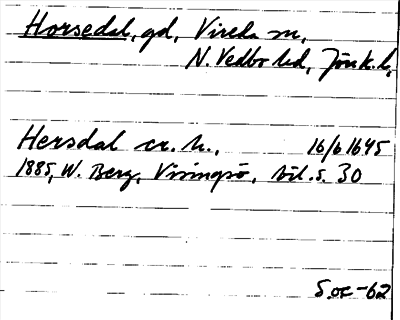 Horsedal, gd, Vireda sn,
N. Vedbo hd, Jönk. l,
Hersdal cr. h., 16/6 1645
1885, W. Berg, Visingsö, bil. s. 30
Soc-62